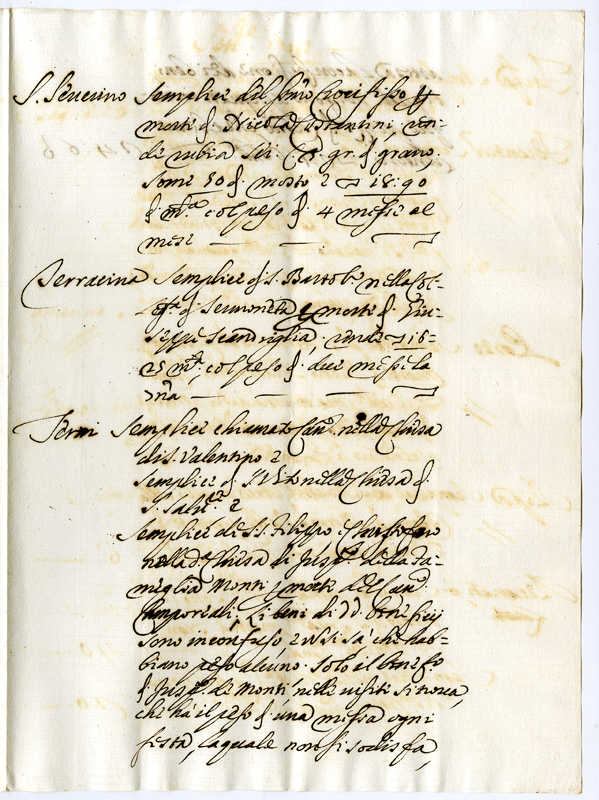 S. Severino Semplice del SSmo Crocifisso p
morte di Nicola Costantini ren-
de rubia sei di grano,
some 50 di mosto e 18:90
di mta col peso di 4 messe al
mese
Terracina Semplice di S. Bartolo nella Col-
di Sermoneta p morte di Giu-
seppe Scandriglia, rende 16-
25 mta, col peso di due messe la
Terni Semplice chiamato Can. nella Chiesa
di S. Valentino e
Semplice di S. Vito nella Chiesa di
S. Salre e
Semplice de SS. Filippo e Christofaro
nella da Chiesa di Juspto della fa-
miglia Monti p morte del Can.
Camporeali, Li beni di dd. beneficij
sono in confuso, e Nsi sà che hab-
biano peso alcuno. Solo il benefo
di Juspto de Monti nelle visite si trova,
che hà il peso di una messa ogni
festa, la quale non si sodisfa,